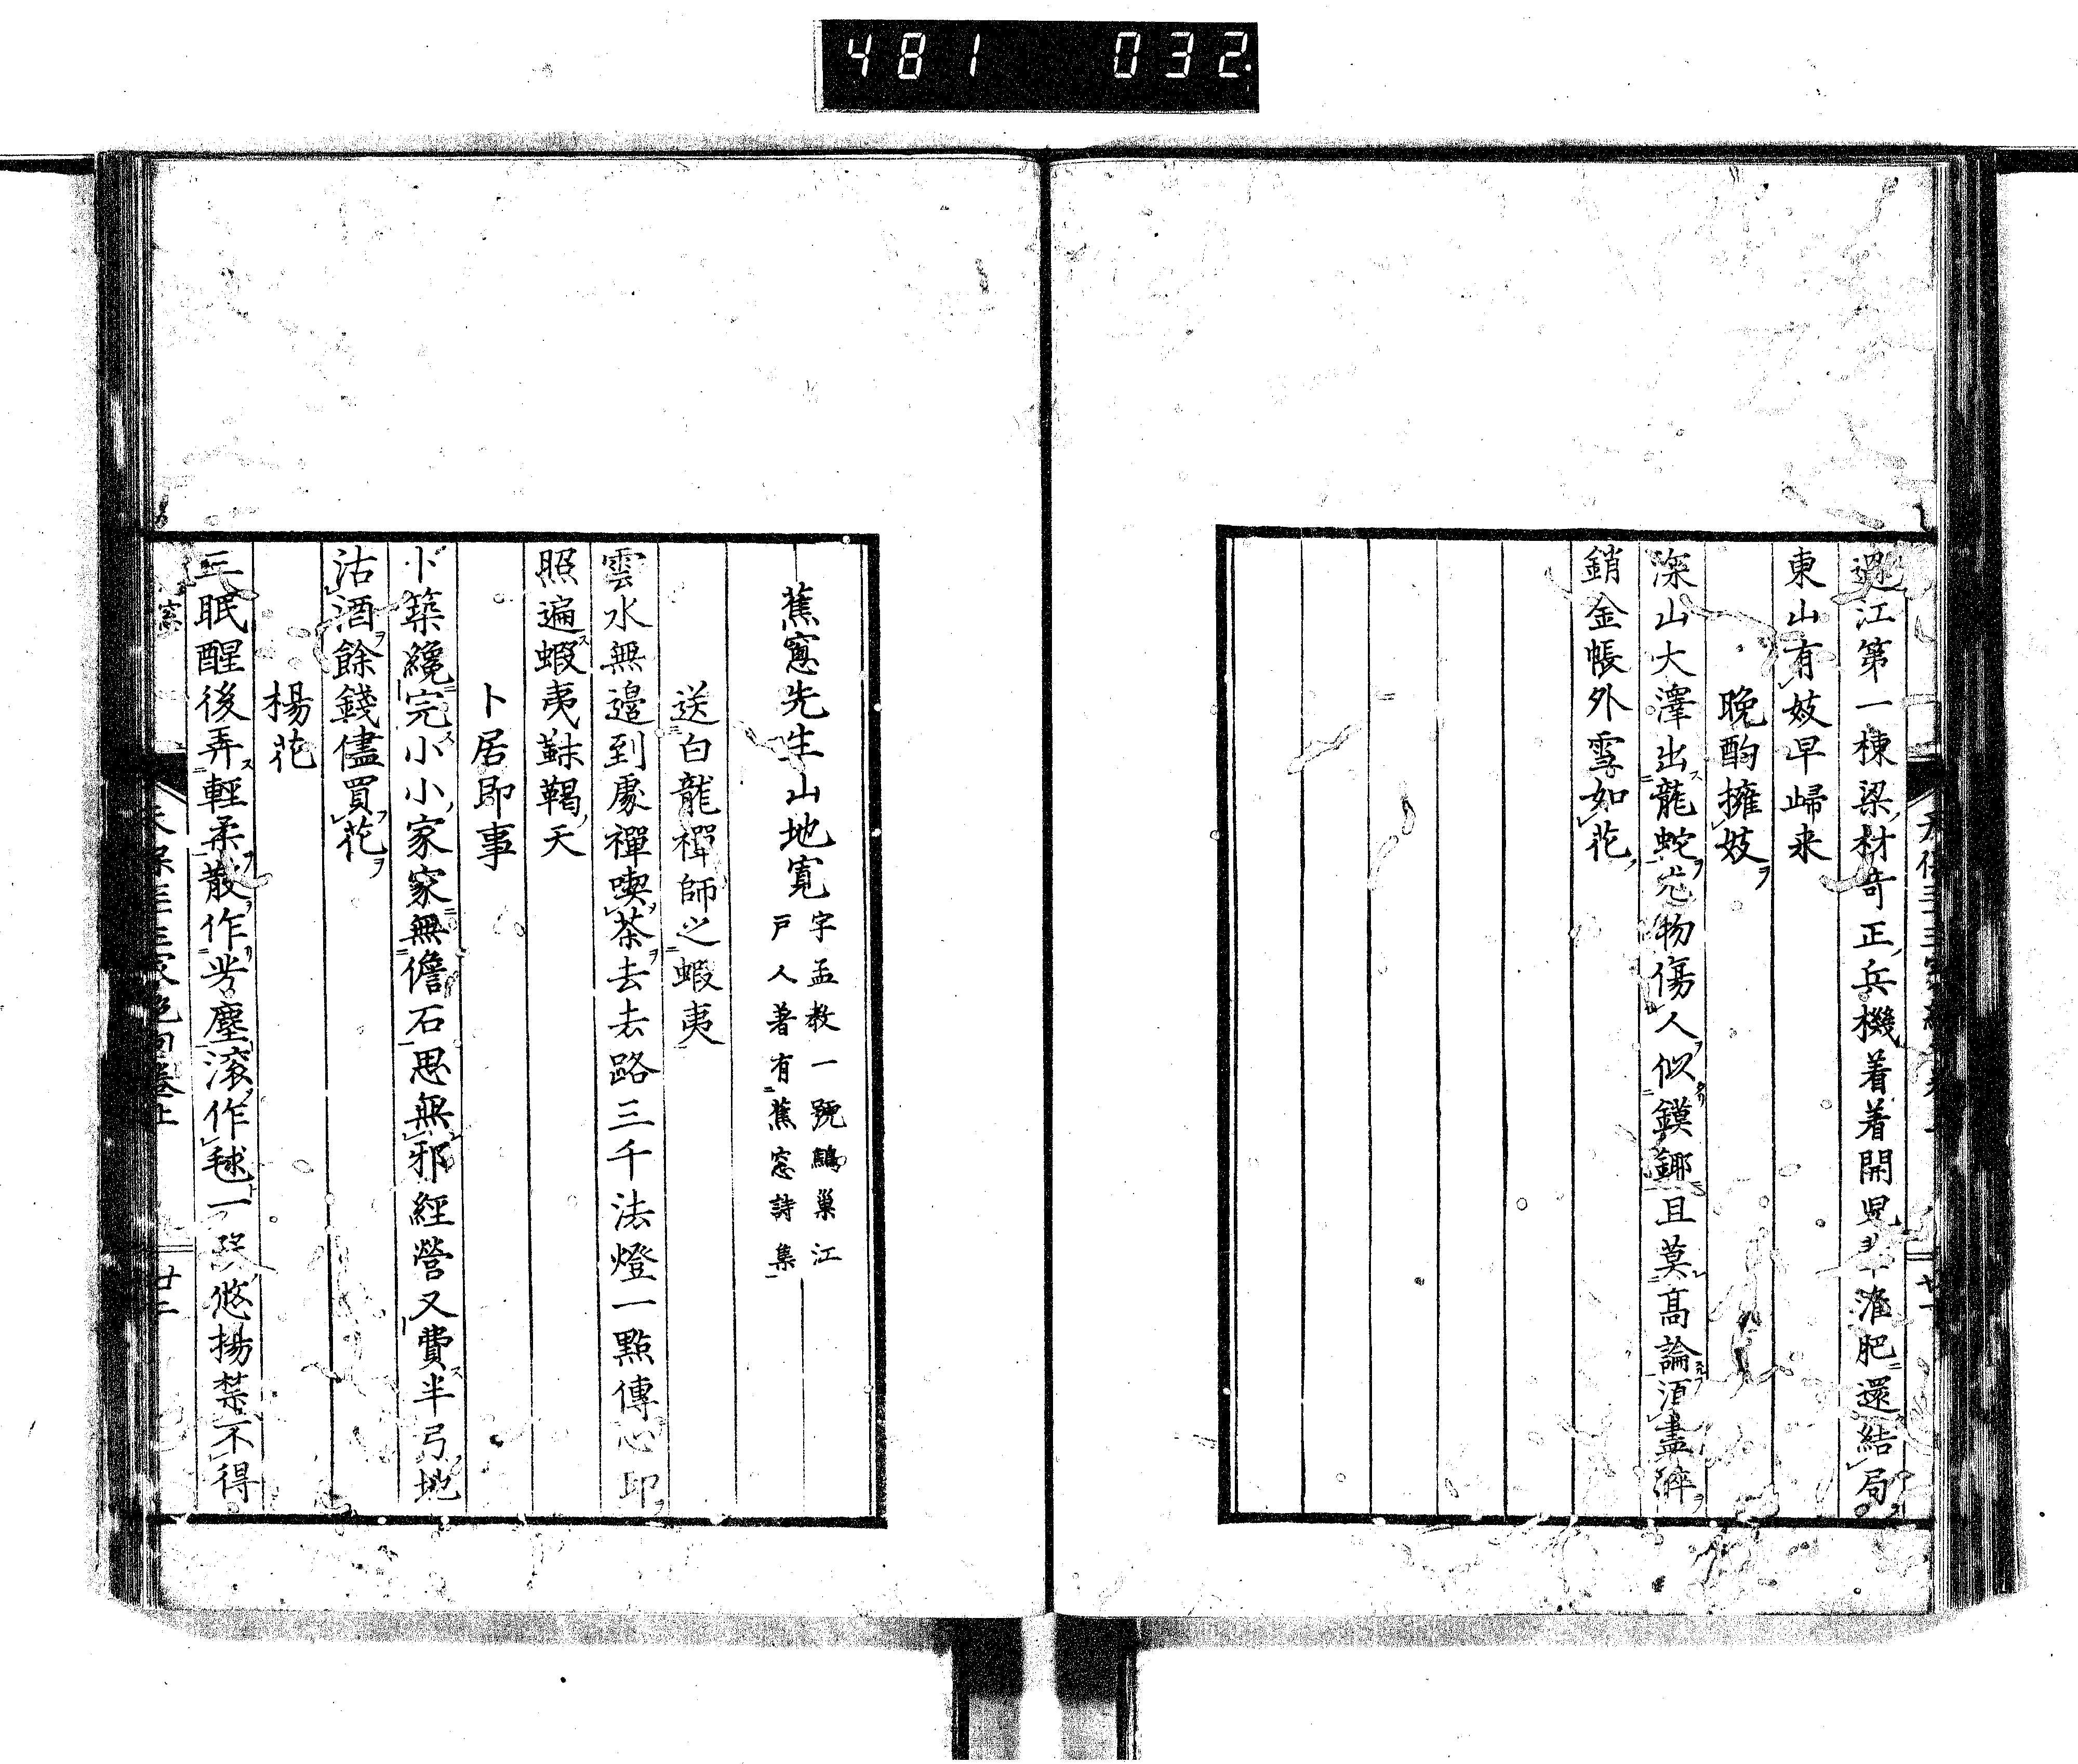 481 032
過江第一棟梁材奇正兵機着着開淮肥還結局
東山有妓早歸来
晩酌擁妓
深山大澤出龍蛇尤物傷人似鏌鎁且莫髙論須盡醉
銷金帳外雪如花
蕉窻先生山地寛
字孟教一號鷦巢江
戸人著有蕉窓詩集
送白龍禪師之蝦夷
雲水無邉到處禪喫茶去去路三千法燈一點傳心印
照遍蝦夷靺鞨天
卜居即事
卜築纔完小小家家無儋石思無邪經營又費半弓地
沽酒餘錢儘買花
楊花
三眠醒後弄輕柔散作芳塵滚作毬一悠揚禁不得
天保三十三家絶句卷上
廿二